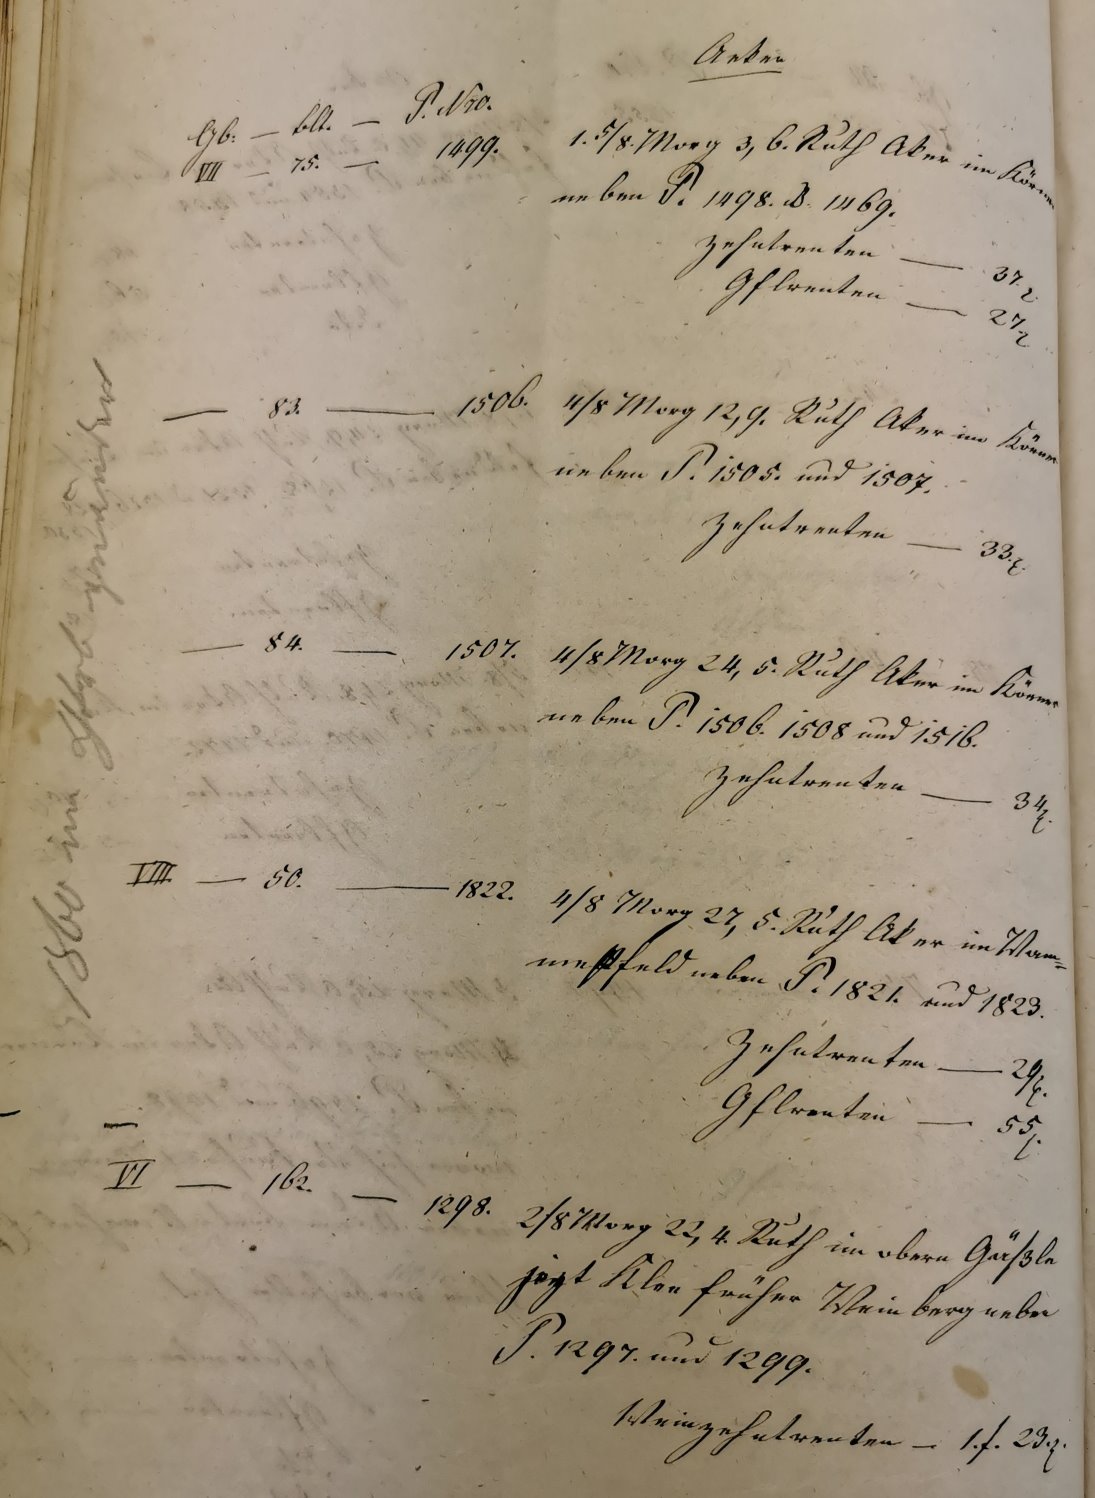 Aeker
Gb. — blt. — P. Nro.
VII — 75. — 1499. 1. 5/8. Morg 3, 6. Ruth Aker im Körner
neben P. 1498. & 1469.
Zehntrenten — 37 x.
Gflrenten — 27 x.
— 83. — 1506. 4/8 Morg 12, 9. Ruth Aker im Körner
neben P. 1505. und 1507.
Zehntrenten — 33 x.
— 84. — 1507. 4/8 Morg 24, 5. Ruth Aker im Körner
neben P. 1506. 1508 und 1516.
Zehntrenten — 34 x.
VIII. — 50. — 1822. 4/8 Morg 27, 5. Ruth Aker im Wam=
meßfeld neben P. 1821. und 1823.
Zehntrenten — 29 x.
Gflrenten — 55 x.
VI — 162. — 1298. 2/8 Morg 22, 4. Ruth im obern Gäßle
jezt Klee früher Weinberg neben
P. 1297. und 1299.
Weinzehntrenten — 1 f. 23 x.
1860 im